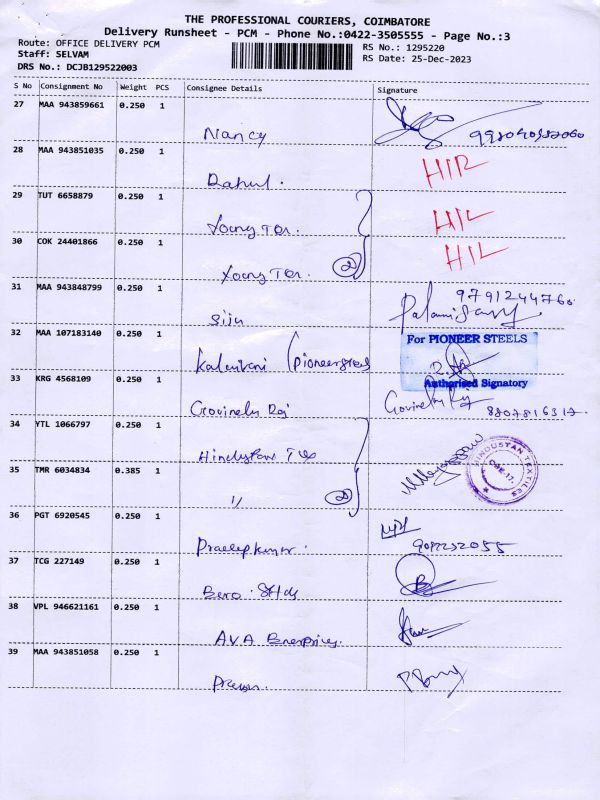 THE PROFESSIONAL COURIERS, COIMBATORE
Delivery Runsheet - PCM - Phone No.:0422-3505555 - Page No.:3
Route: OFFICE DELIVERY PCM
RS No.: 1295220
Staff: SELVAM
RS Date: 25-Dec-2023
DRS No.: DCJB129522003
S No Consignment No Weight PCS Consignee Details Signature
27 MAA 943859661 0.250 1
Nancy
28 MAA 943851035 0.250 1
Rahul.
29 TUT 6658879 0.250 1
30 COK 24401866 0.250 1
2
31 MAA 943848799 0.250 1
Siju 9791244760
32 MAA 107183140 0.250 1
For PIONEER STEELS
Kalaivani (Pioneer steels
Authorised Signatory
33 KRG 4568109 0.250 1
Govindu Raj
34 YTL 1066797 0.250 1
Hindustan Tex
HINDUSTAN TEXTILES
35 TMR 6034834 0.385 1
11 2
36 PGT 6920545 0.250 1
Pradeepkumar.
37 TCG 227149 0.250 1
B
38 VPL 946621161 0.250 1
AVA Enterprises.
39 MAA 943851058 0.250 1